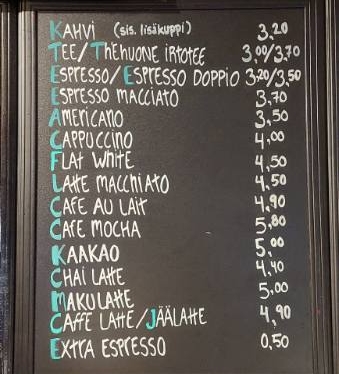 KAHVI (sis. lisäkuppi) 3,20
TEE/THEHUONE IRTOTEE 3,00/3,70
ESPRESSO/ESPRESSO DOPPIO 3,20/3,50
ESPRESSO MACCIATO 3,70
AMERICANO 3,50
CAPPUCCINO 4,00
FLAT WHITE 4,50
LATTE MACCHIATO 4,50
CAFE AU LAIT 4,90
CAFE MOCHA 5,80
KAAKAO 5,00
CHAI LATTE 4,40
MAKULATTE 5,00
CAFFE LATTE/JÄÄLATTE 4,90
EXTRA ESPRESSO 0,50